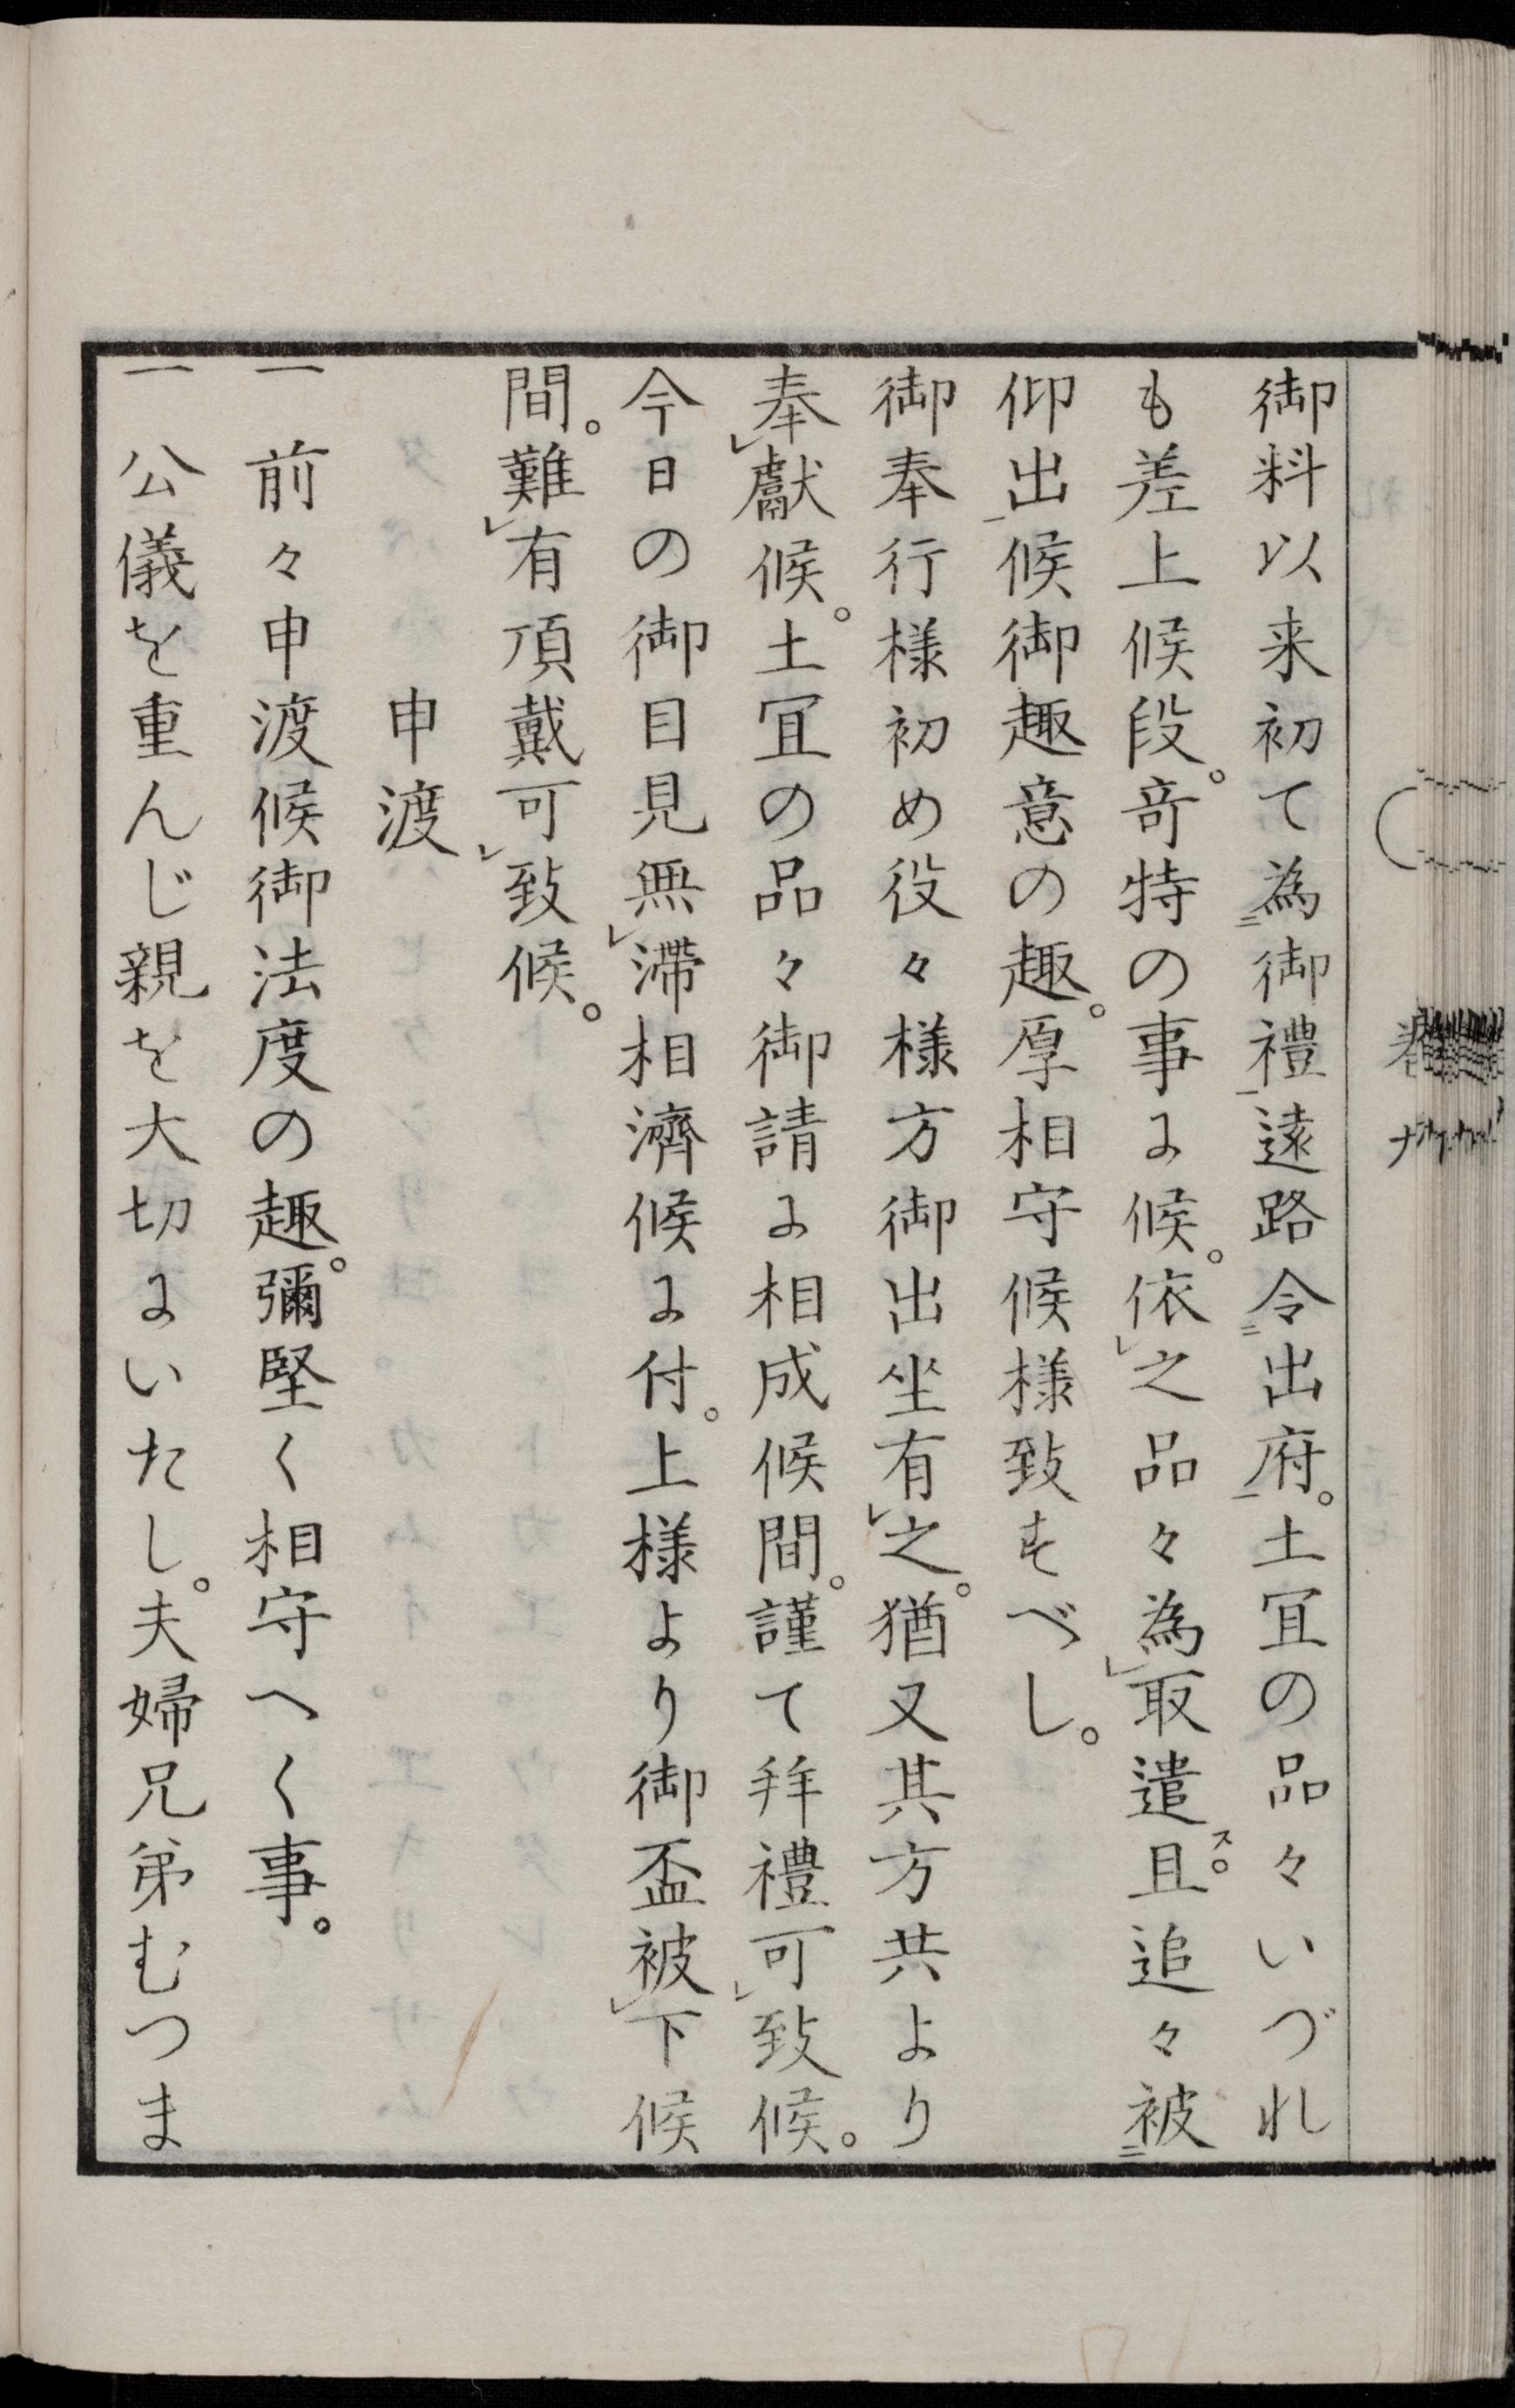 御料以来初て為㆓御禮㆒遠路令㆓出府㆒。土冝の品々いづれ
も差上候段。竒特の事に候。依㆑之品々為㆑取遣ス。且追々被㆓
仰出㆒候御趣意の趣。厚相守候様致すべし。
御奉行様初め役々様方御出坐有㆑之。猶又其方共より
奉㆑獻候。土冝の品々御請に相成候間。謹て拜禮可㆑致候。
今日の御目見無㆑滞相濟候に付。上様より御盃被㆑下候
間。難㆑有頂戴可㆑致候。
申渡
一 前々申渡候御法度の趣。彌堅く相守へく事。
一 公儀を重んじ親を大切にいたし。夫婦兄弟むつま